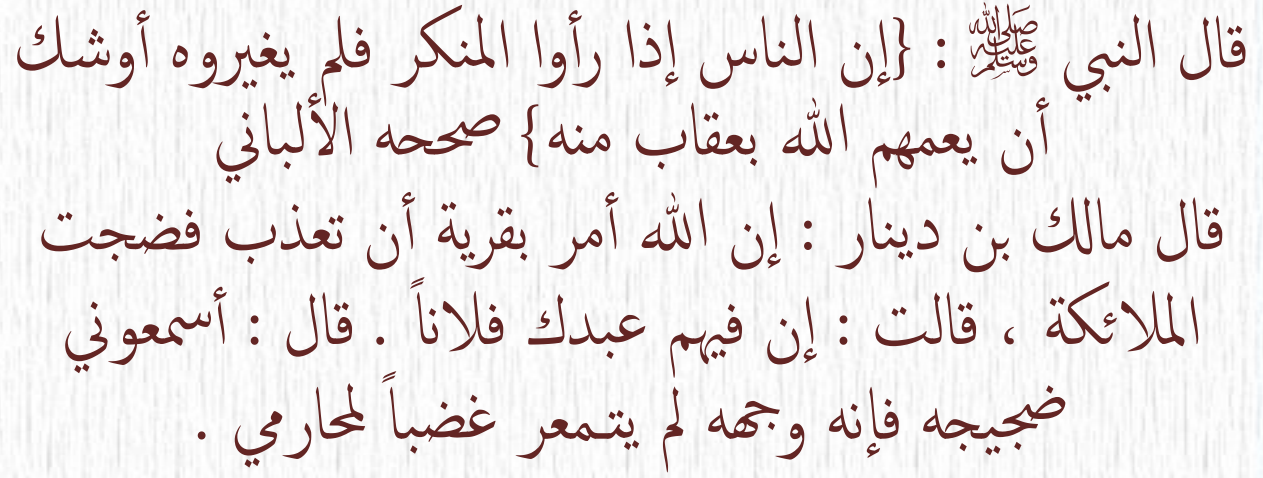 قال النبي ﷺ : {إن الناس إذا رأوا المنكر فلم يغيروه أوشك
أن يعمهم الله بعقاب منه} صححه الألباني
قال مالك بن دينار : إن الله أمر بقرية أن تعذب فضجت
الملائكة ، قالت : إن فيهم عبدك فلاناً . قال : أسمعوني
ضجيجه فإنه وجهه لم يتمعر غضباً لمحارمي .